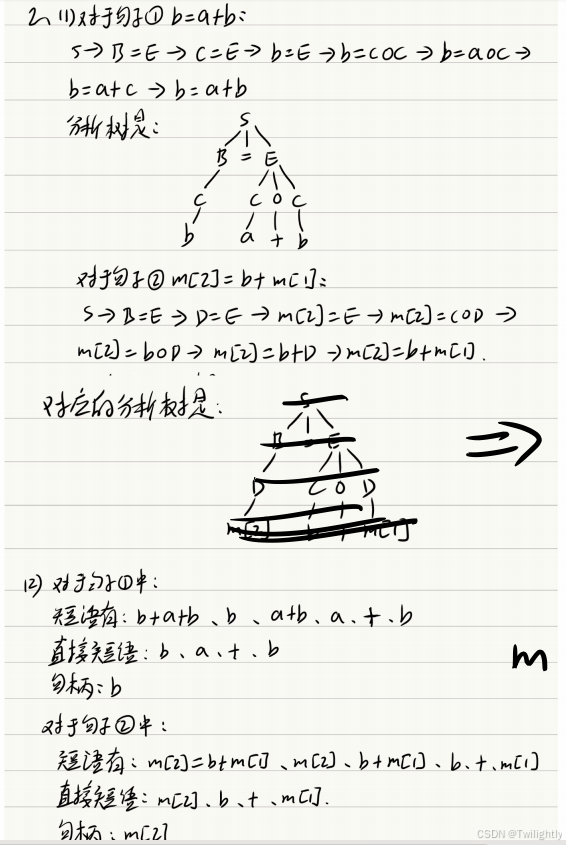 2、(1)对于句子① b=a+b:
S→B=E→C=E→b=E→b=COC→b=aOC→
b=a+C→b=a+b
分析树是:
S
B = E
C C O C
b a + b
对于句子② m[2]=b+m[1]:
S→B=E→D=E→m[2]=E→m[2]=COD→
m[2]=bOD→m[2]=b+D→m[2]=b+m[1].
对应的分析树是:
S
B = E
D C O D
m[2] b + m[1]
⇒
(2) 对于句子①中:
短语有:b+a+b、b、a+b、a、+、b
直接短语:b、a、+、b
m
句柄:b
对于句子②中:
短语有:m[2]=b+m[1]、m[2]、b+m[1]、b、+、m[1]
直接短语:m[2]、b、+、m[1].
句柄:m[2]
CSDN @Twilightly